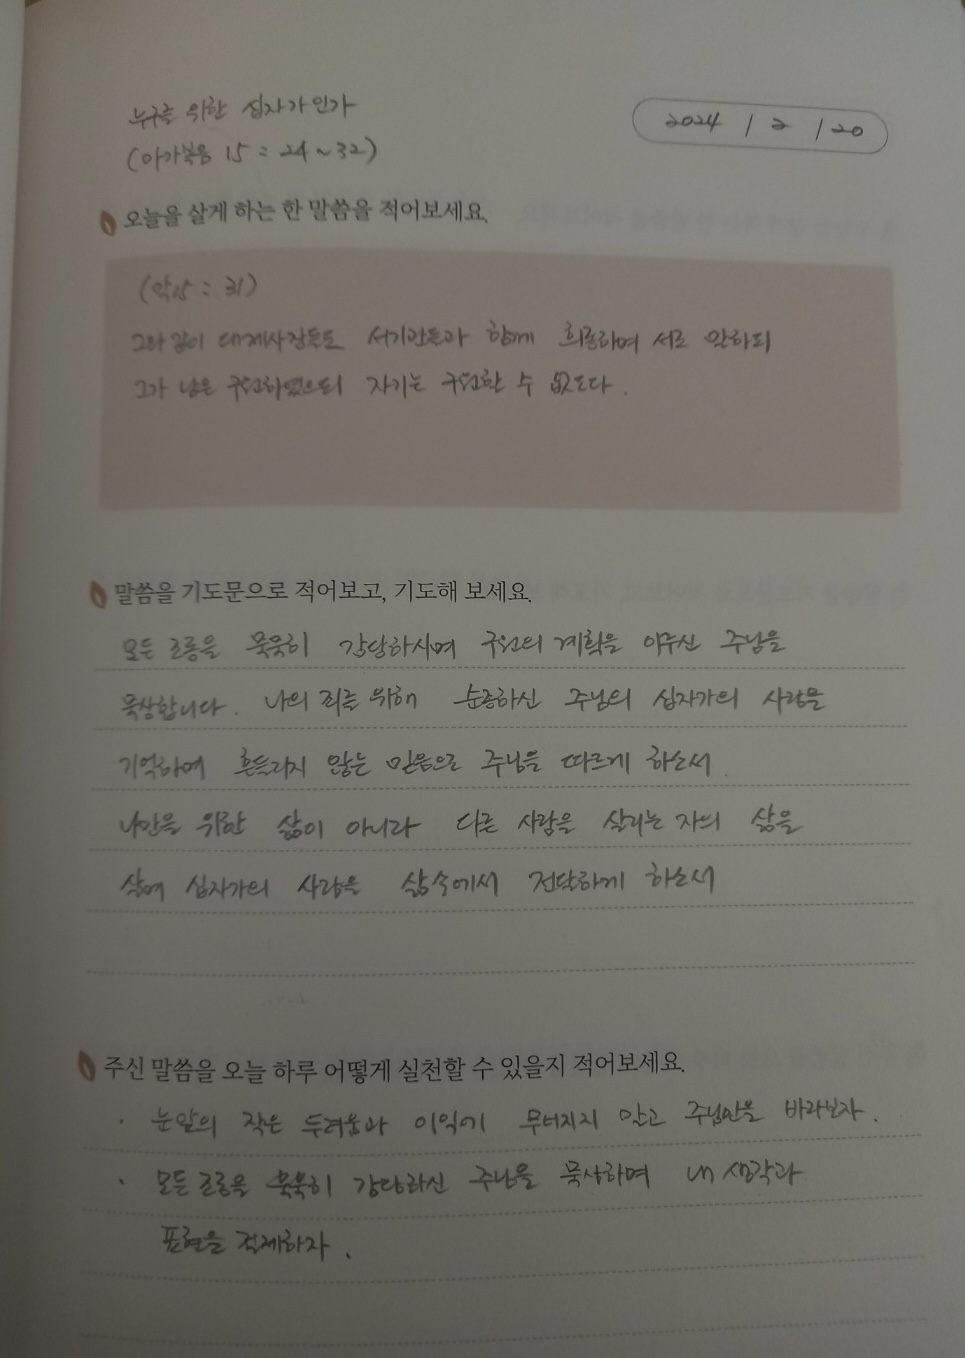 누구를 위한 십자가인가
2024 / 2 / 20
(마가복음 15 : 24~32)
오늘을 살게 하는 한 말씀을 적어보세요.
(막15 : 31)
그와 같이 대제사장들도 서기관들과 함께 희롱하며 서로 말하되
그가 남은 구원하였으되 자기는 구원할 수 없도다.
말씀을 기도문으로 적어보고, 기도해 보세요.
모든 조롱을 묵묵히 감당하시며 구원의 계획을 이루신 주님을
묵상합니다. 나의 죄를 위해 순종하신 주님의 십자가의 사랑을
기억하며 흔들리지 않는 믿음으로 주님을 따르게 하소서.
나만을 위한 삶이 아니라 다른 사람을 살리는 자의 삶을
살며 십자가의 사랑을 삶속에서 전달하게 하소서
주신 말씀을 오늘 하루 어떻게 실천할 수 있을지 적어보세요.
· 눈앞의 작은 두려움과 이익에 무너지지 말고 주님만을 바라보자.
· 모든 조롱을 묵묵히 감당하신 주님을 묵상하며 내 생각과
표현을 절제하자.